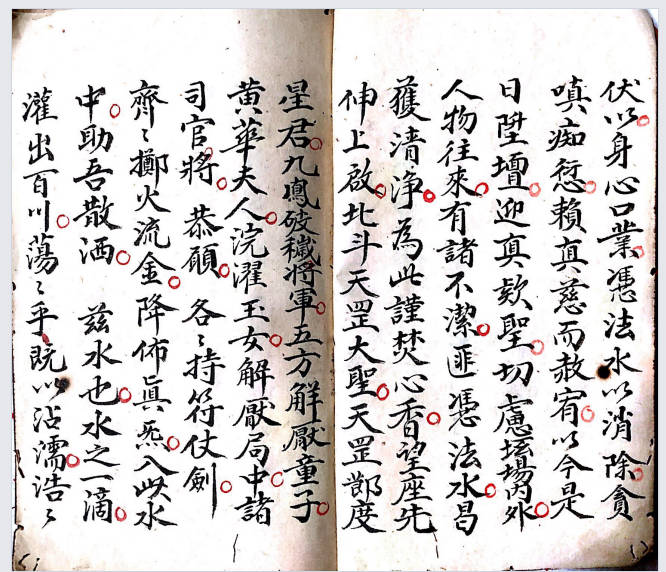 伏以身心口業。憑法水以消除。貪
嗔痴愆。賴真慈而赦宥。以今是
日陞壇迎真欵聖。切慮坛場內外。
人物往來。有諸不潔。匪憑法水。曷
獲清淨。為此謹焚心香。望座先
伸上啟。北斗天罡大聖。天罡鄷度
星君。九鳳破穢將軍。五方解厭童子。
黄華夫人。浣濯玉女。解厭局中諸
司官將。恭願。各〻持符仗劍。
齊〻擲火流金。降佈真炁。入此水
中。助吾散洒。兹水也。水之一滴。
灌出百川。蕩〻乎既以沾濡。浩〻